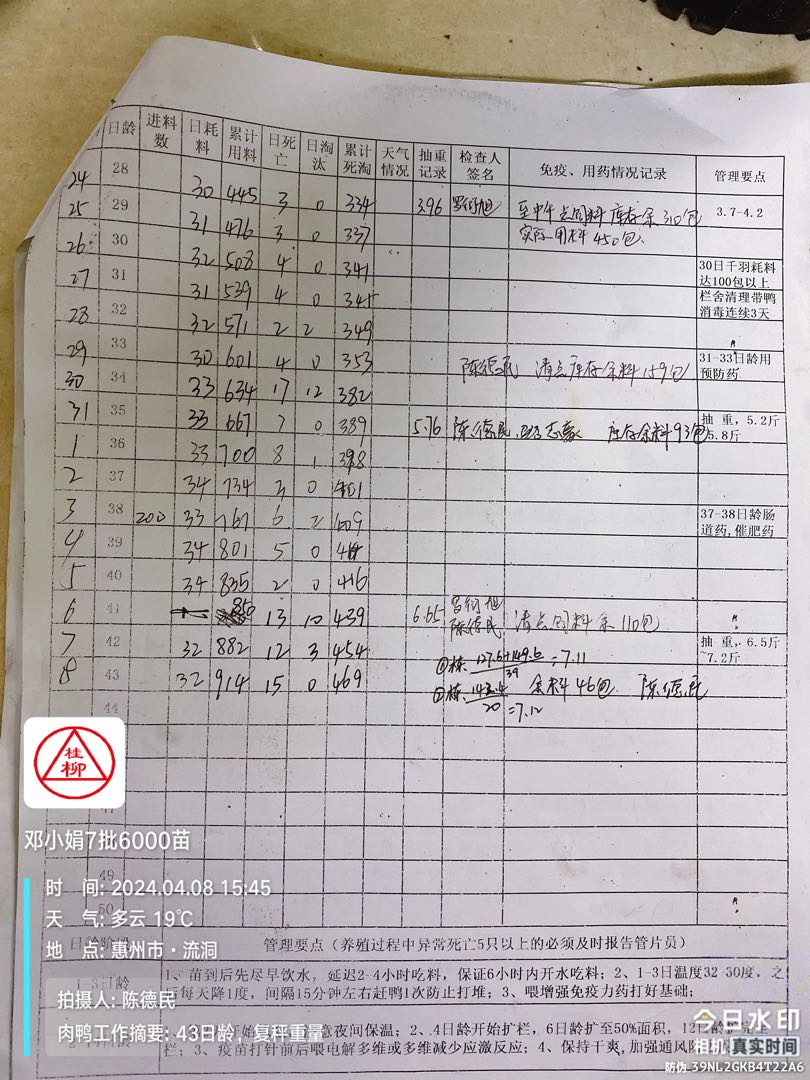 日龄 进料数 日耗料 累计用料 日死亡 日淘汰 累计死淘 天气情况 抽重记录 检查人签名 免疫、用药情况记录 管理要点
24 28 30 445 3 0 334
25 29 31 476 3 0 337 3.96 至中午点饲料库存余310包 3.7-4.2
实际用料450包.
26 30 32 508 4 0 341
27 31 31 539 4 0 345 30日千羽耗料达100包以上
栏舍清理带鸭消毒连续3天
28 32 32 571 2 2 349
29 33 30 601 4 0 353 陈德民 清点库存余料159包 31-33日龄用预防药
30 34 33 634 17 12 382
31 35 33 667 7 0 389 5.76 陈德民 库存余料93包 抽重,5.2斤
5.8斤
1 36 33 700 8 1 398
2 37 34 734 3 0 401
3 38 200 33 767 6 2 409 37-38日龄肠道药,催肥药
4 39 34 801 5 0 414
5 40 34 835 2 0 416
6 41 850 13 10 439 6.65 陈德民 清点饲料余110包
7 42 32 882 12 3 454 抽重,6.5斤
~7.2斤
8 43 32 914 15 0 469
①栋 127.6+149.6/39=7.11
②栋 /20=7.12 余料46包. 陈德民
44
49
50
桂柳
邓小娟7批6000苗
时 间: 2024.04.08 15:45
天 气: 多云 19℃
地 点: 惠州市·流洞
拍摄人: 陈德民
肉鸭工作摘要: 43日龄,复秤重量
日龄阶段 管理要点(养殖过程中异常死亡5只以上的必须及时报告管片员)
1-3日龄 1、苗到后先尽早饮水,延迟2-4小时吃料,保证6小时内开水吃料;2、1-3日温度32-30度,之
后每天降1度,间隔15分钟左右赶鸭1次防止打堆;3、喂增强免疫力药打好基础;
意夜间保温;2、4日龄开始扩栏,6日龄扩至50%面积,12日龄扩完全
栏;3、疫苗打针前后喂电解多维或多维减少应激反应;4、保持干爽,加强通风
今日水印
相机 真实时间
防伪 39NL2GKB4T22A6